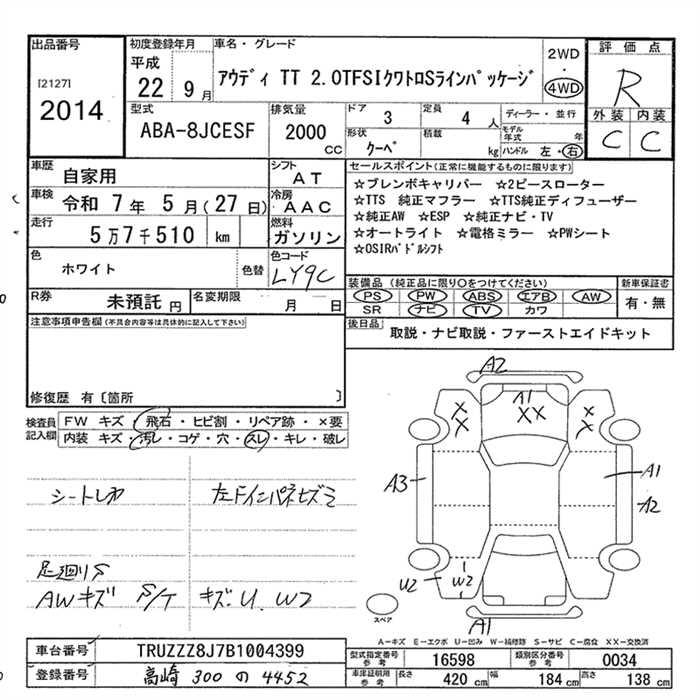 出品番号
[2127]
2014
初度登録年月
平成
22 9月
車名・グレード
アウディ TT 2.0TFSIクワトロSラインパッケージ
2WD
・
4WD
評価点
R
外装 内装
C C
型式
ABA-8JCESF
排気量
2000 CC
ドア 3
定員 4 人
ディーラー・並行
形状 クーペ
積載 kg
モデル年式 年
ハンドル 左・右
車歴 自家用
シフト AT
車検 令和 7年 5月(27日)
冷房 AAC
走行 5万7千510 km
燃料 ガソリン
色 ホワイト
色替
色コード LY9C
R券 未預託 円
名変期限 月 日
セールスポイント(正常に機能するものに限ります)
☆ブレンボキャリパー ☆2ピースローター
☆TTS 純正マフラー ☆TTS純正ディフューザー
☆純正AW ☆ESP ☆純正ナビ・TV
☆オートライト ☆電格ミラー ☆PWシート
☆OSIRパドルシフト
装備品(純正品に限り○をつけてください)
PS PW ABS エアB AW
SR ナビ TV カワ
新車保証書
有・無
後日品
取説・ナビ取説・ファーストエイドキット
注意事項申告欄(不具合内容等は具体的に記入して下さい)
修復歴 有〔箇所 〕
検査員記入欄
FW キズ・飛石・ヒビ割・リペア跡・×要
内装 キズ・汚レ・コゲ・穴・スレ・キレ・破レ
シートしわ
足廻りS
AWキズ S/ケ キズ.U.W2
A2
A1
XX
X
X
X
X
A3
A1
A2
U2
W2
A1
スペア
A-キズ E-エクボ U-凹み W-補修跡 S-サビ C-腐食 XX-交換済
車台番号 TRUZZZ8J7B1004399
登録番号 高崎 300 の 4452
型式指定番号 参考 16598
類別区分番号 参考 0034
車庫証明用 参考
長さ 420 cm
幅 184 cm
高さ 138 cm